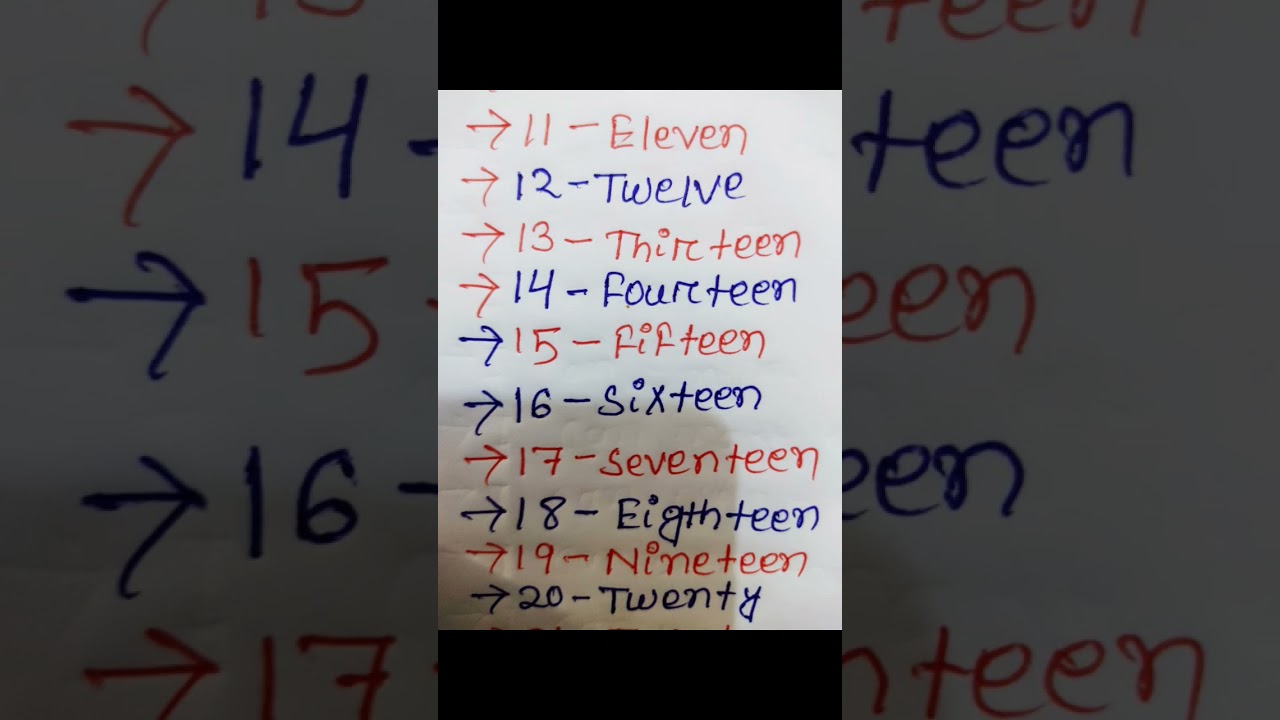 →11 - Eleven
→12 - Twelve
→13 - Thirteen
→14 - Fourteen
→15 - Fifteen
→16 - Sixteen
→17 - Seventeen
→18 - Eigthteen
→19 - Nineteen
→20 - Twenty